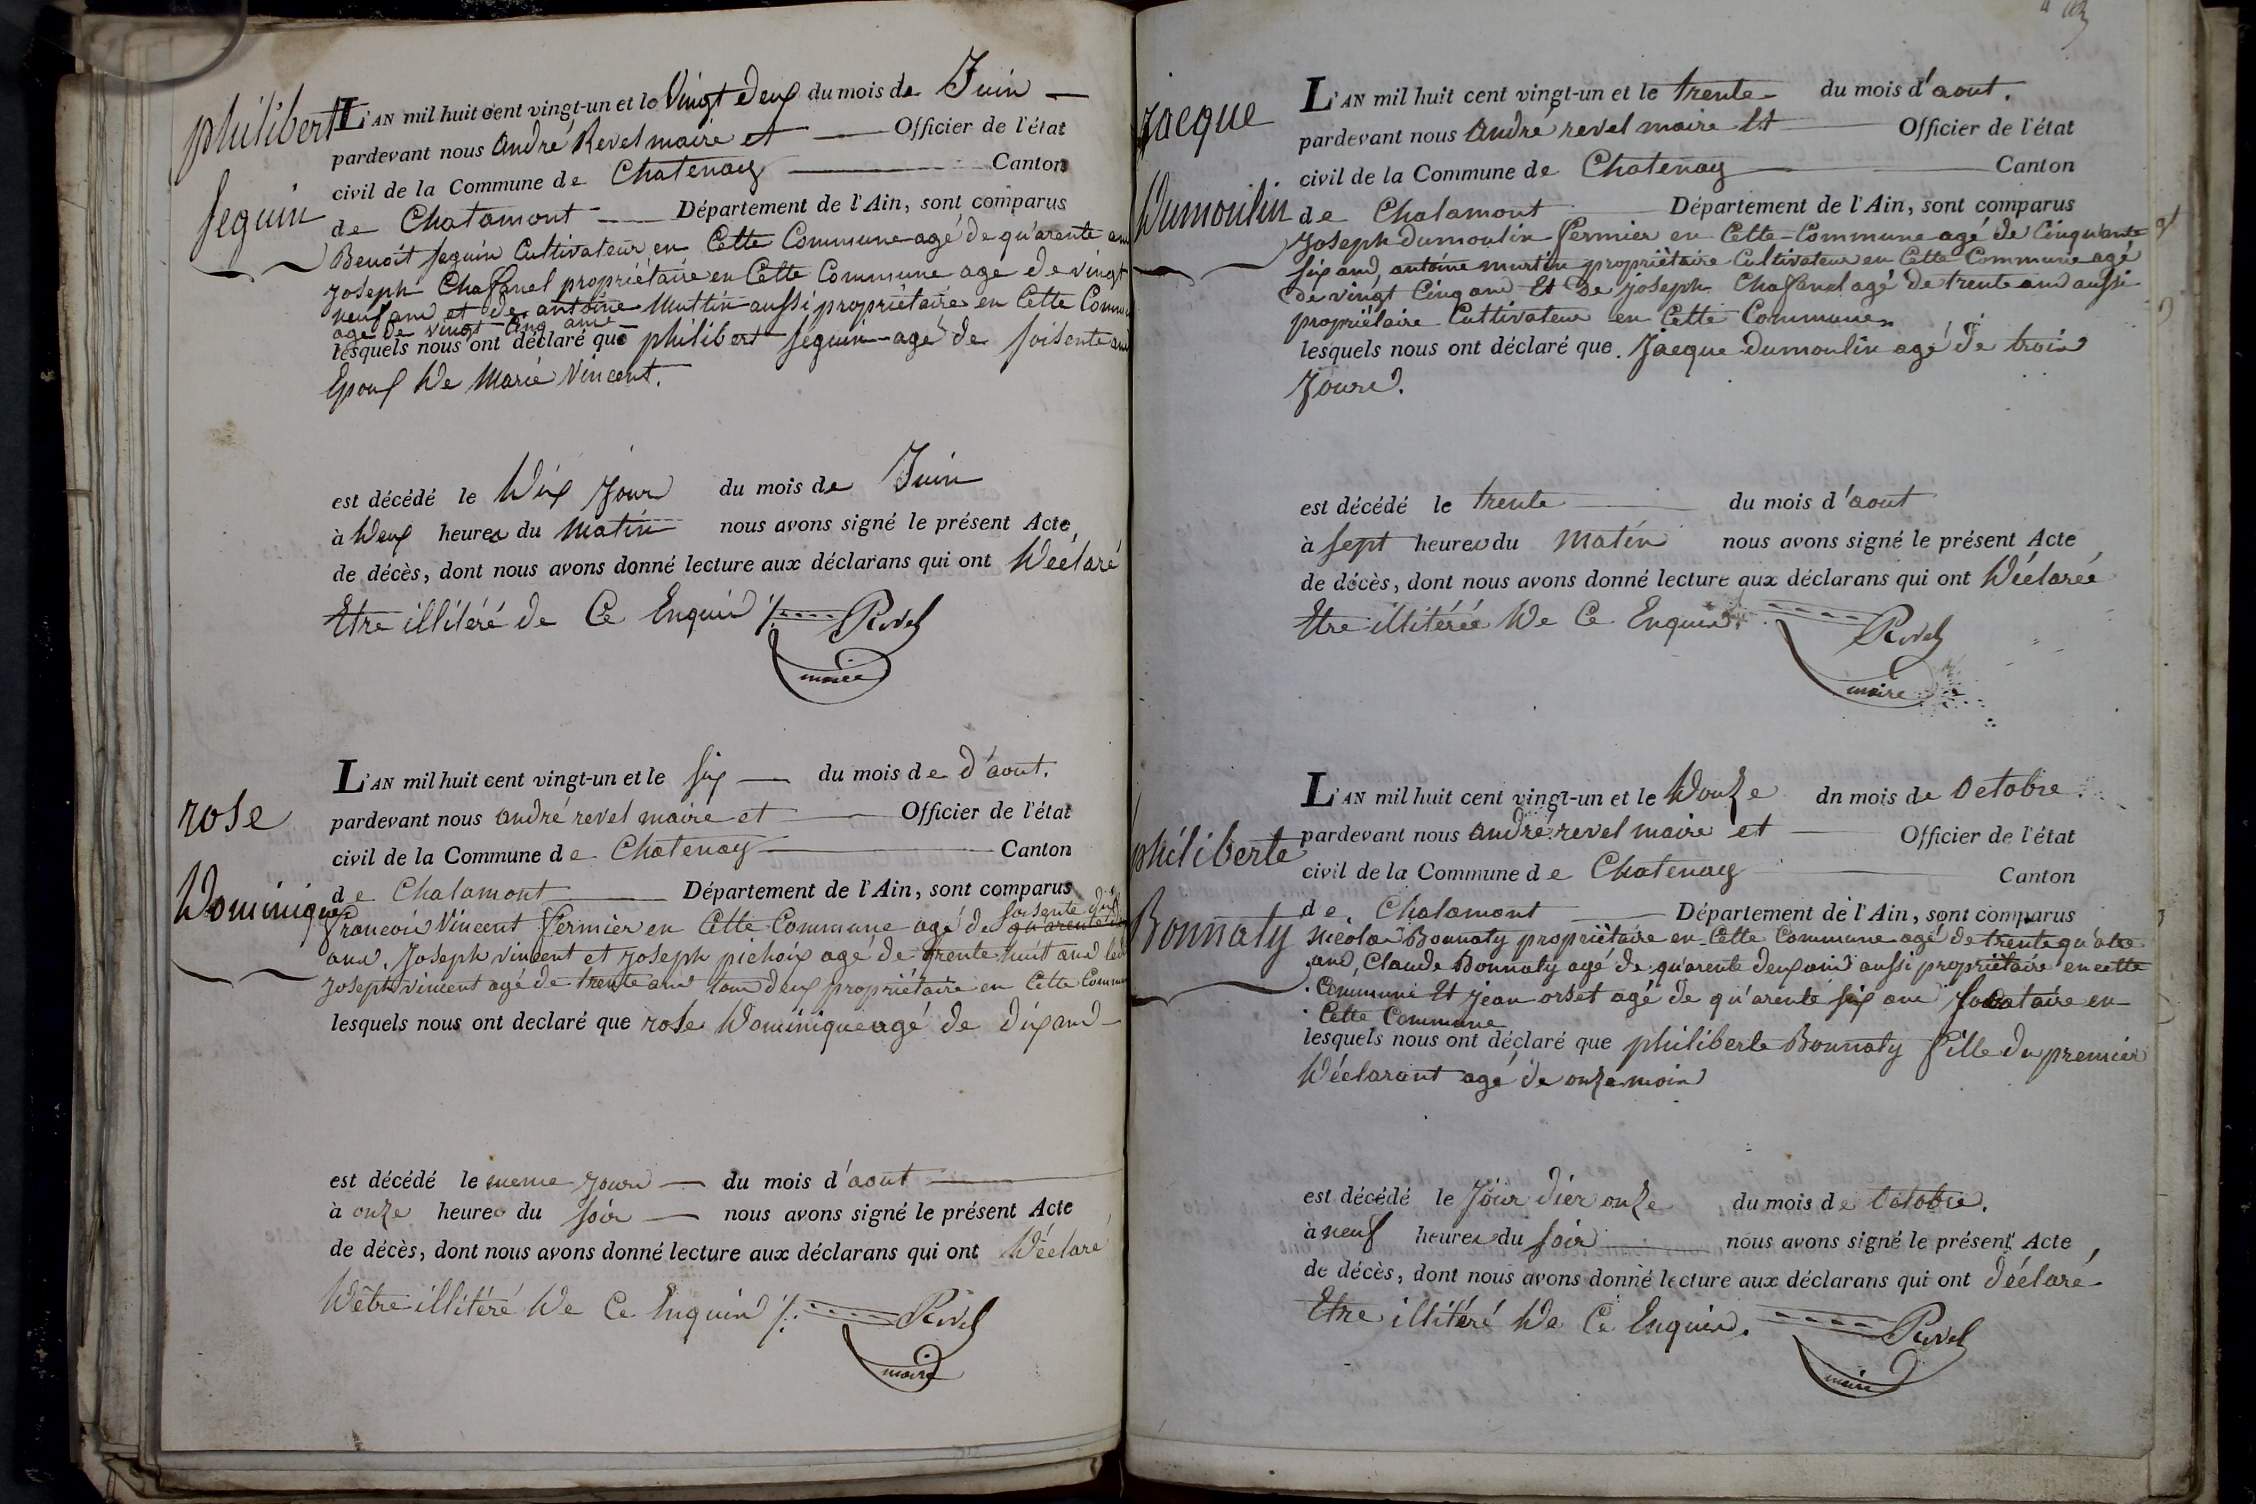 philibert
Seguin
L'AN mil huit cent vingt-un et le vingt deux du mois de Juin
pardevant nous andré Revel maire et Officier de l'état
civil de la Commune de Chatenay Canton
de Chalamont Département de l'Ain, sont comparus
Benoit Seguin Cultivateur en Cette Commune agé de qu'arente ans
Joseph Chaffanel propriétaire en Cette Commune age de vingt
neuf ans et de antoine Muttin aussi propriétaire en Cette Commune
agé de vingt Cinq ans
lesquels nous ont déclaré que philibert Seguin agé de soisente ans
Epoux De Marie Vincent.
est décédé le Dix Jour du mois de Juin
à Deux heures du Matin nous avons signé le présent Acte
de décès, dont nous avons donné lecture aux déclarans qui ont Déclaré
Etre illitéré de Ce Enquis
Revel
maire
rose
Dominique
L'AN mil huit cent vingt-un et le six du mois de d'aout.
pardevant nous andré revel maire et Officier de l'état
civil de la Commune de Chatenay Canton
de Chalamont Département de l'Ain, sont comparus
francois Vincent fermier en Cette Commune agé de qu'arente soisente dix
ans. Joseph vincent et Joseph pichoix agé de trente huit ans led
Joseph vincent agé de trente ans tous deux propriétaire en Cette Commune
lesquels nous ont declaré que rose Dominique agé de dix ans
est décédé le meme Jours du mois d'aout
à onze heures du soir nous avons signé le présent Acte
de décès, dont nous avons donné lecture aux déclarans qui ont Déclaré
D'etre illitéré De Ce Enquis
Revel
maire
Jacque
Dumoulin
L'AN mil huit cent vingt-un et le trente du mois d'aout.
pardevant nous andré revel maire Et Officier de l'état
civil de la Commune de Chatenay Canton
de Chalamont Département de l'Ain, sont comparus
Joseph dumoulin fermier en Cette Commune agé de Cinquante
six ans, antoine muttin propriétaire Cultivateur en Cette Commune agé
de vingt Cinq ans Et De joseph Chafanel agé de trente ans aussi
propriétaire Cultivateur en Cette Commune
lesquels nous ont déclaré que Jacque Dumoulin agé de trois
Jours.
est décédé le trente du mois d'aout
à sept heures du Matin nous avons signé le présent Acte
de décès, dont nous avons donné lecture aux déclarans qui ont Déclarée
Etre illitérée De Ce Enquis.
Revel
maire
philiberte
Bonnaty
L'AN mil huit cent vingt-un et le Douze dn mois de Octobre.
pardevant nous andré revel maire et Officier de l'état
civil de la Commune de Chatenay Canton
de Chalamont Département de l'Ain, sont comparus
Nicolas Bonnaty propriétaire en Cette Commune agé de trente qu'atre
ans, Claude Bonnaty agé de qu'arente deux ans aussi propriétaire en cette
Commune Et jean orset agé de qu'arente six ans locataire en
Cette Commune
lesquels nous ont déclaré que philiberte Bonnaty fille du premier
Déclarant agé de onze mois
est décédé le Jour dier onze du mois de Octobre.
à neuf heures du soir nous avons signé le présent Acte
de décès, dont nous avons donné lecture aux déclarans qui ont déclaré
Etre illitéré De Ce Enquis.
Revel
maire